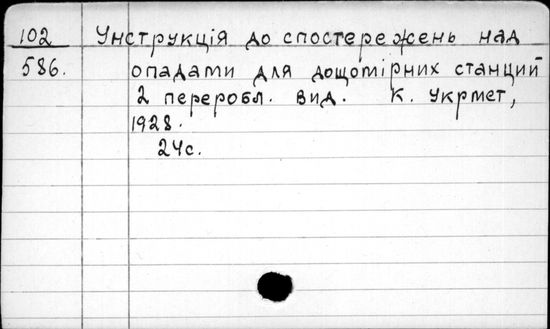 102 Инструкція до спостережень над
586. опадами для дощомірних станций
2 переробл. вид. К. Укрмет,
1928.
24с.